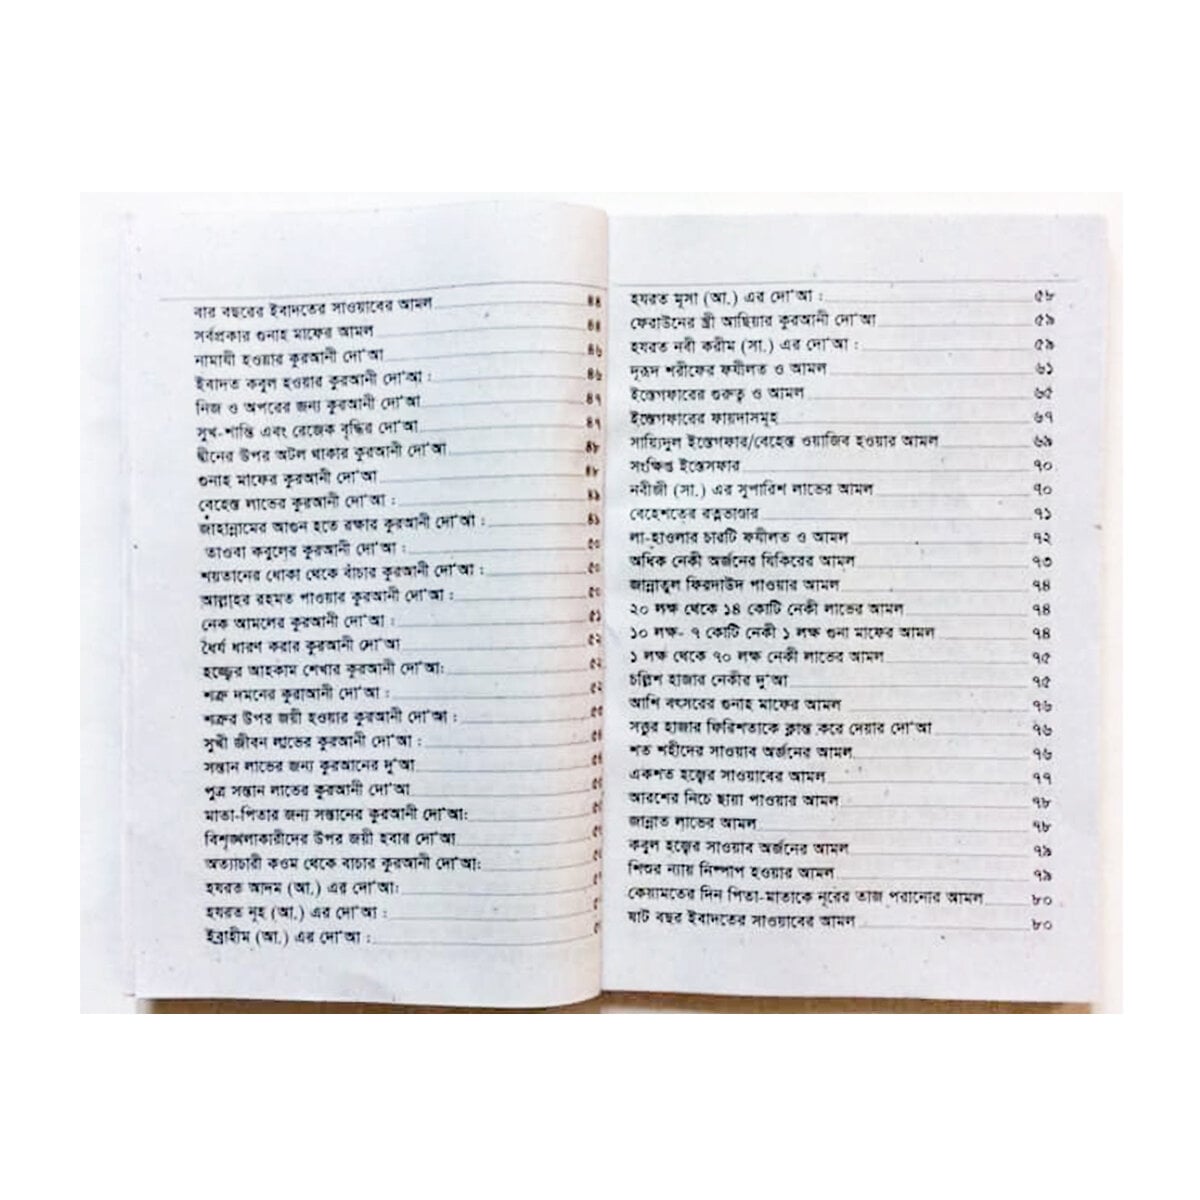 বার বছরের ইবাদতের সাওয়াবের আমল ৪৪
সর্বপ্রকার গুনাহ মাফের আমল ৪৪
নামাযী হওয়ার কুরআনী দো'আ ৪৬
ইবাদত কবুল হওয়ার কুরআনী দো'আ : ৪৬
নিজ ও অপরের জন্য কুরআনী দো'আ ৪৭
সুখ-শান্তি এবং রেজেক বৃদ্ধির দো'আ ৪৭
দ্বীনের উপর অটল থাকার কুরআনী দো'আ ৪৮
গুনাহ মাফের কুরআনী দো'আ ৪৮
বেহেস্ত লাভের কুরআনী দো'আ : ৪৯
জাহান্নামের আগুন হতে রক্ষার কুরআনী দো'আ : ৪৯
তাওবা কবুলের কুরআনী দো'আ : ৫০
শয়তানের ধোকা থেকে বাঁচার কুরআনী দো'আ : ৫০
আল্লাহর রহমত পাওয়ার কুরআনী দো'আ : ৫০
নেক আমলের কুরআনী দো'আ : ৫১
ধৈর্য ধারণ করার কুরআনী দো'আ ৫২
হজ্জের আহকাম শেখার কুরআনী দো'আ: ৫২
শত্রু দমনের কুরাআনী দো'আ : ৫২
শত্রুর উপর জয়ী হওয়ার কুরআনী দো'আ :
সুখী জীবন লাভের কুরআনী দো'আ :
সন্তান লাভের জন্য কুরআনের দু'আ
পুত্র সন্তান লাভের কুরআনী দো'আ
মাতা-পিতার জন্য সন্তানের কুরআনী দো'আ:
বিশৃঙ্খলাকারীদের উপর জয়ী হবার দো'আ
অত্যাচারী কওম থেকে বাচার কুরআনী দো'আ:
হযরত আদম (আ.) এর দো'আ:
হযরত নূহ (আ.) এর দো'আ :
ইব্রাহীম (আ.) এর দো'আ :
হযরত মূসা (আ.) এর দো'আ : ৫৮
ফেরাউনের স্ত্রী আছিয়ার কুরআনী দো'আ ৫৯
হযরত নবী করীম (সা.) এর দো'আ : ৫৯
দূরূদ শরীফের ফযীলত ও আমল ৬১
ইস্তেগফারের গুরুত্ব ও আমল ৬৫
ইস্তেগফারের ফায়দাসমূহ ৬৭
সায়্যিদুল ইস্তেগফার/বেহেস্ত ওয়াজিব হওয়ার আমল ৬৯
সংক্ষিপ্ত ইস্তেসফার ৭০
নবীজী (সা.) এর সুপারিশ লাভের আমল ৭০
বেহেশতের রত্নভাণ্ডার ৭১
লা-হাওলার চারটি ফযীলত ও আমল ৭২
অধিক নেকী অর্জনের যিকিরের আমল ৭৩
জান্নাতুল ফিরদাউদ পাওয়ার আমল ৭৪
২০ লক্ষ থেকে ১৪ কোটি নেকী লাভের আমল ৭৪
১০ লক্ষ- ৭ কোটি নেকী ১ লক্ষ গুনা মাফের আমল ৭৪
১ লক্ষ থেকে ৭০ লক্ষ নেকী লাভের আমল ৭৫
চল্লিশ হাজার নেকীর দু'আ ৭৫
আশি বৎসরের গুনাহ মাফের আমল ৭৬
সত্তুর হাজার ফিরিশতাকে ক্লান্ত করে দেয়ার দো'আ ৭৬
শত শহীদের সাওয়াব অর্জনের আমল ৭৬
একশত হজ্বের সাওয়াবের আমল ৭৭
আরশের নিচে ছায়া পাওয়ার আমল ৭৮
জান্নাত লাভের আমল ৭৮
কবুল হজ্বের সাওয়াব অর্জনের আমল ৭৯
শিশুর ন্যায় নিষ্পাপ হওয়ার আমল ৭৯
কেয়ামতের দিন পিতা-মাতাকে নূরের তাজ পরানোর আমল ৮০
ষাট বছর ইবাদতের সাওয়াবের আমল ৮০